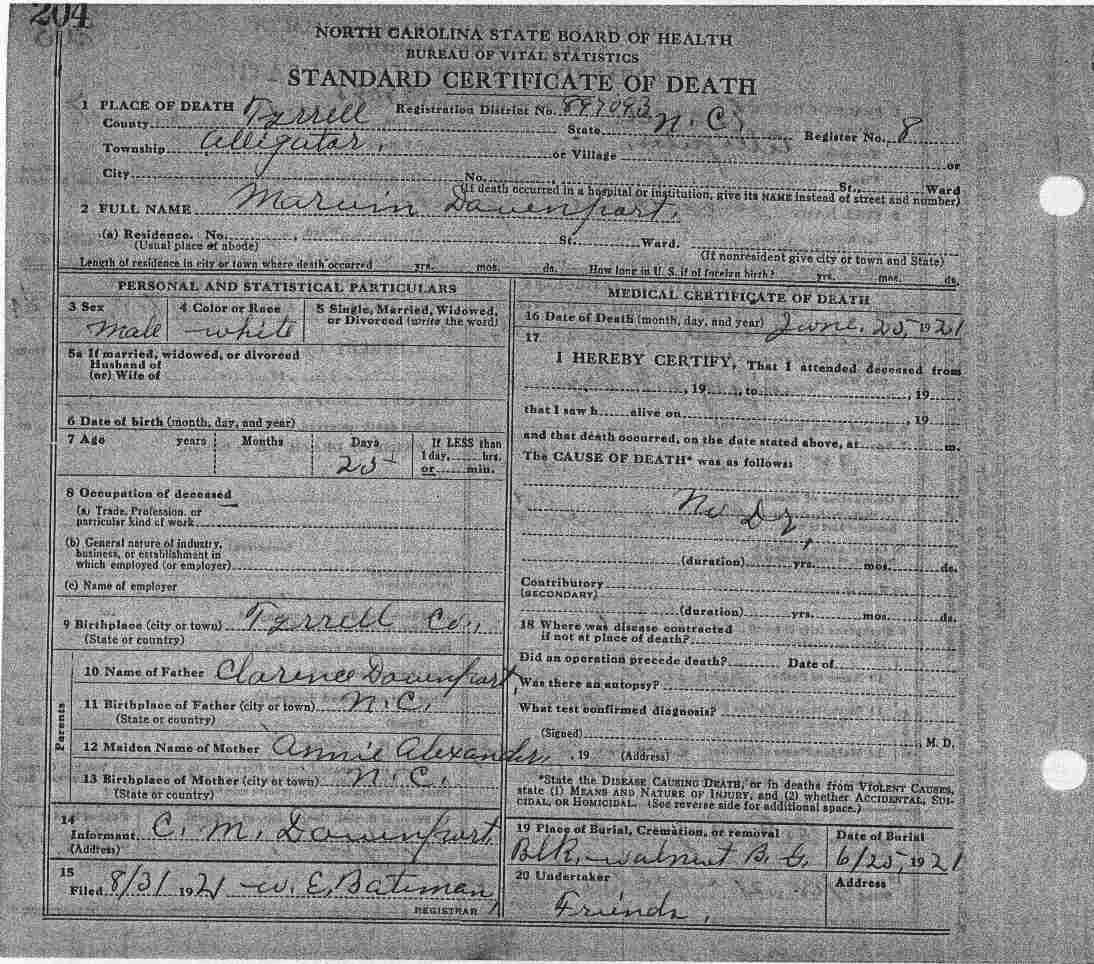 204
NORTH CAROLINA STATE BOARD OF HEALTH
BUREAU OF VITAL STATISTICS
STANDARD CERTIFICATE OF DEATH
1 PLACE OF DEATH Registration District No. 897093
County Tyrrell State N.C. Register No. 8
Township Alligator, or Village or
City No. St., Ward
(If death occurred in a hospital or institution, give its NAME instead of street and number)
2 FULL NAME Marvin Davenport.
(a) Residence. No. , St. Ward.
(Usual place of abode) (If nonresident give city or town and State)
Length of residence in city or town where death occurred yrs. mos. ds. How long in U. S. if of foreign birth? yrs. mos. ds.
PERSONAL AND STATISTICAL PARTICULARS
3 Sex 4 Color or Race 5 Single, Married, Widowed,
or Divorced (write the word)
Male white
5a If married, widowed, or divorced
Husband of
(or) Wife of
6 Date of birth (month, day, and year)
7 Age years Months Days If LESS than
1 day, hrs.
or min.
25
8 Occupation of deceased
(a) Trade, Profession, or
particular kind of work
(b) General nature of industry,
business, or establishment in
which employed (or employer)
(c) Name of employer
9 Birthplace (city or town) Tyrrell Co.,
(State or country)
Parents
10 Name of Father Clarence Davenport,
11 Birthplace of Father (city or town) N.C.
(State or country)
12 Maiden Name of Mother Annie Alexander,
13 Birthplace of Mother (city or town) N.C.
(State or country)
14
Informant C. M. Davenport,
(Address)
15
Filed 8/31 1921 W. E. Bateman,
REGISTRAR
MEDICAL CERTIFICATE OF DEATH
16 Date of Death (month, day, and year) June, 25, 1921
17
I HEREBY CERTIFY, That I attended deceased from
, 19 , to , 19
that I saw h alive on , 19
and that death occurred, on the date stated above, at m.
The CAUSE OF DEATH* was as follows:
No Dr,
(duration) yrs. mos. ds.
Contributory
(SECONDARY)
(duration) yrs. mos. ds.
18 Where was disease contracted
if not at place of death?
Did an operation precede death? Date of
Was there an autopsy?
What test confirmed diagnosis?
(Signed) , M. D.
, 19 (Address)
*State the DISEASE CAUSING DEATH, or in deaths from VIOLENT CAUSES,
state (1) MEANS AND NATURE OF INJURY, and (2) whether ACCIDENTAL, SUI-
CIDAL, OR HOMICIDAL. (See reverse side for additional space.)
19 Place of Burial, Cremation, or removal Date of Burial
Blk. Walnut B. G. 6/25, 1921
20 Undertaker Address
Friends,